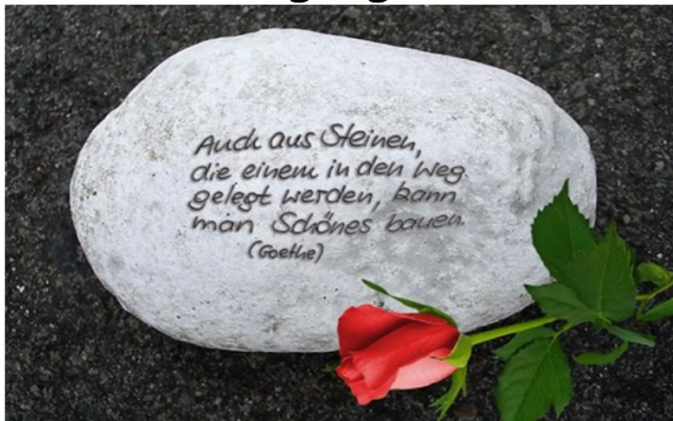 Auch aus Steinen,
die einem in den Weg
gelegt werden, kann
man Schönes bauen.
(Goethe)